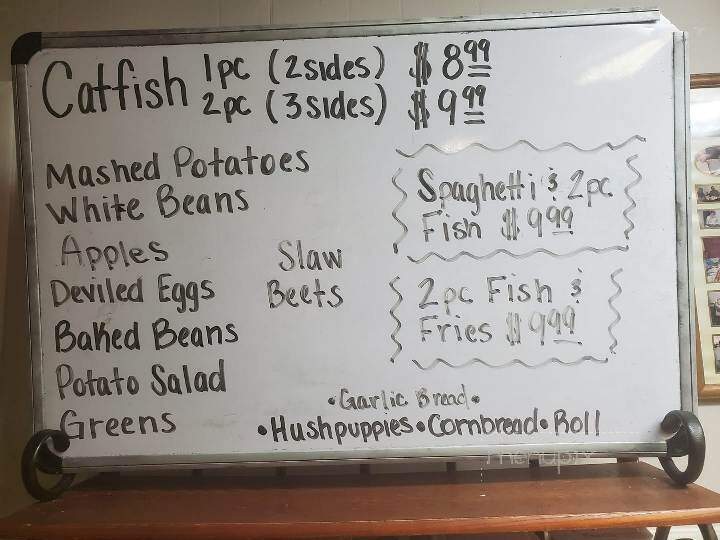 Catfish 1pc (2sides) $8.99
2pc (3sides) $9.99
Mashed Potatoes
White Beans
Apples
Deviled Eggs
Baked Beans
Potato Salad
Greens
Slaw
Beets
Spaghetti & 2pc
Fish $9.99
2pc Fish &
Fries $9.99
•Garlic Bread•
•Hushpuppies•Cornbread•Roll
menupix